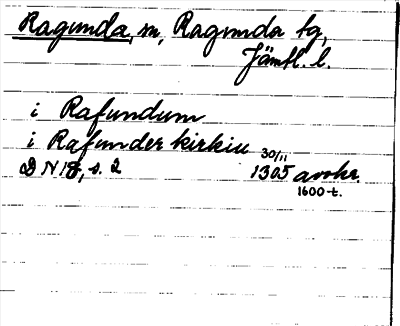 Ragunda, sn, Ragunda tg,
Jämtl. l.
i Rafundum
i Rafunder kirkiu 30/11
DN 18, s. 2 1305 avskr.
1600-t.